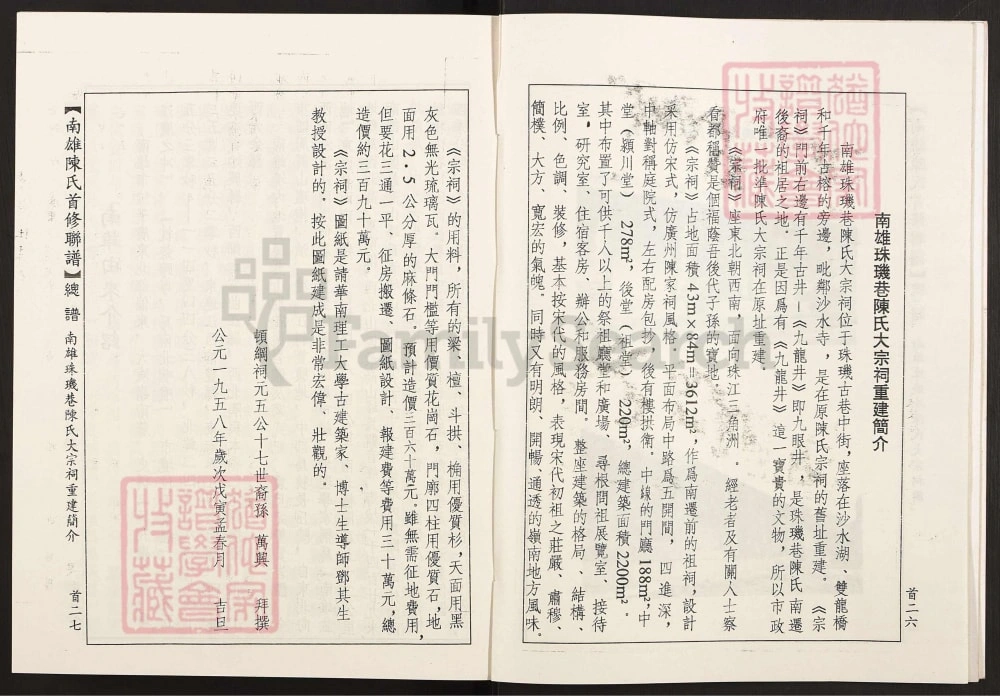 首二六
南雄珠璣巷陳氏大宗祠重建簡介
南雄珠璣巷陳氏大宗祠位于珠璣古巷中街，座落在沙水湖、雙龍橋
和千年古榕的旁邊，毗鄰沙水寺，是在原陳氏宗祠的舊址重建。《宗
祠》門前右邊有千年古井—《九龍井》即九眼井，是珠璣巷陳氏南遷
後裔的祖居之地。正是因爲有《九龍井》這一寶貴的文物，所以市政
府唯一批準陳氏大宗祠在原址重建。
《宗祠》座東北朝西南，面向珠江三角洲。經老者及有關人士察
看都稱贊是個福蔭吾後代子孫的寶地。
《宗祠》占地面積43m×84m=3612m²，作爲南遷前的祖祠，設計
采用仿宋式，仿廣州陳家祠風格，平面布局中路爲五開間，四進深，
中軸對稱庭院式，左右配房包抄，後有樓拱衛。中線的門廳188m²，中
堂（潁川堂）278m²，後堂（祖堂）220m²，總建築面積2200m²．
其中布置了可供千人以上的祭祖廳堂和廣場、尋根問祖展覽室、接待
室，研究室、住宿客房、辦公和服務房間。整座建築的格局、結構、
比例、色調、裝修，基本按宋代的風格，表現宋代初祖之莊嚴、肅穆、
簡樸、大方、寬宏的氣魄。同時又有明朗、開暢、通透的嶺南地方風味。
《宗祠》的用料，所有的梁、檀、斗拱、桷用優質杉，天面用黑
灰色無光琉璃瓦。大門門檻等用價質花崗石，門廓四柱用優質石，地
面用2.5公分厚的麻條石。預計造價三百六十萬元。雖無需征地費用，
但要花三通一平、征房搬遷、圖紙設計、報建費等費用三十萬元，總
造價約三百九十萬元。
《宗祠》圖紙是請華南理工大學古建築家、博士生導師鄧其生
教授設計的。按此圖紙建成是非常宏偉、壯觀的。
頓綱祠元五公十七世裔孫 萬興 拜撰
公元一九五八年歲次戊寅孟春月 古旦
【南雄陳氏首修聯譜】總譜 南雄珠璣巷陳氏大宗祠重建簡介 首二七
FamilySearch